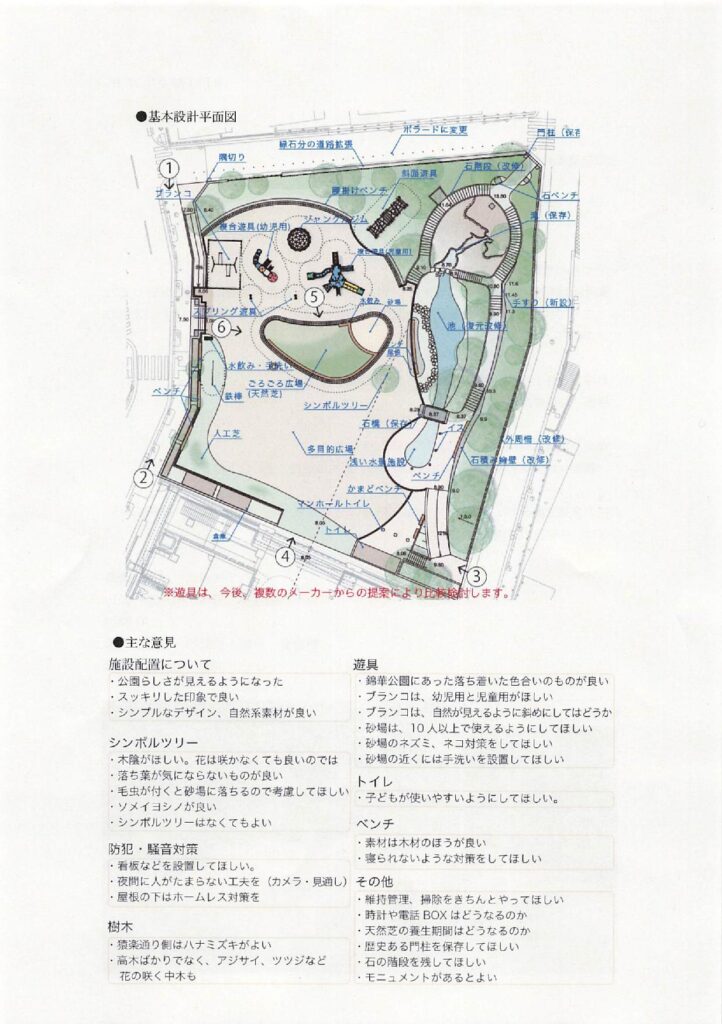 ●基本設計平面図
ボラードに変更
縁石分の道路拡張
門柱（保存
隅切り
①
ブランコ
斜面遊具
石階段（改修）
腰掛けベンチ
石ベンチ
滝（保存）
複合遊具(幼児用)
ジャングルジム
複合遊具(児童用)
手すり（新設）
スプリング遊具
⑤
水飲み
砂場
⑥
池（復元改修）
水飲み・手洗い
ごろごろ広場
(天然芝)
ベンチ
鉄棒
シンボルツリー
石橋（保存）
人工芝
多目的広場
浅い水景施設
外周柵（改修）
石積み擁壁（改修）
ベンチ
②
かまどベンチ
マンホールトイレ
倉庫
トイレ
④
③
※遊具は、今後、複数のメーカーからの提案により比較検討します。
●主な意見
施設配置について
・公園らしさが見えるようになった
・スッキリした印象で良い
・シンプルなデザイン、自然系素材が良い
シンボルツリー
・木陰がほしい。花は咲かなくても良いのでは
・落ち葉が気にならないものが良い
・毛虫が付くと砂場に落ちるので考慮してほしい
・ソメイヨシノが良い
・シンボルツリーはなくてもよい
防犯・騒音対策
・看板などを設置してほしい。
・夜間に人がたまらない工夫を（カメラ・見通し）
・屋根の下はホームレス対策を
樹木
・猿楽通り側はハナミズキがよい
・高木ばかりでなく、アジサイ、ツツジなど
花の咲く中木も
遊具
・錦華公園にあった落ち着いた色合いのものが良い
・ブランコは、幼児用と児童用がほしい
・ブランコは、自然が見えるように斜めにしてはどうか
・砂場は、10人以上で使えるようにしてほしい
・砂場のネズミ、ネコ対策をしてほしい
・砂場の近くには手洗いを設置してほしい
トイレ
・子どもが使いやすいようにしてほしい。
ベンチ
・素材は木材のほうが良い
・寝られないような対策をしてほしい
その他
・維持管理、掃除をきちんとやってほしい
・時計や電話BOXはどうなるのか
・天然芝の養生期間はどうなるのか
・歴史ある門柱を保存してほしい
・石の階段を残してほしい
・モニュメントがあるとよい